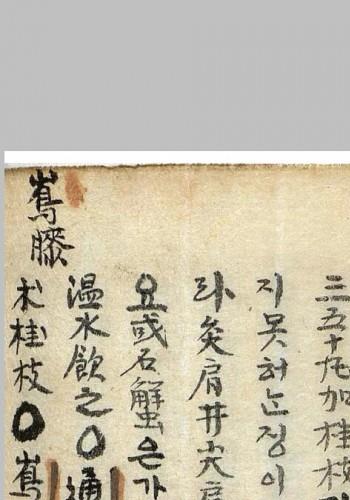 三五十丸加桂枝
지못허는졍이
라灸肩井尖肩
요或石蟹은가
溫水飮之○通
朮桂枝○蔦
蔦藤